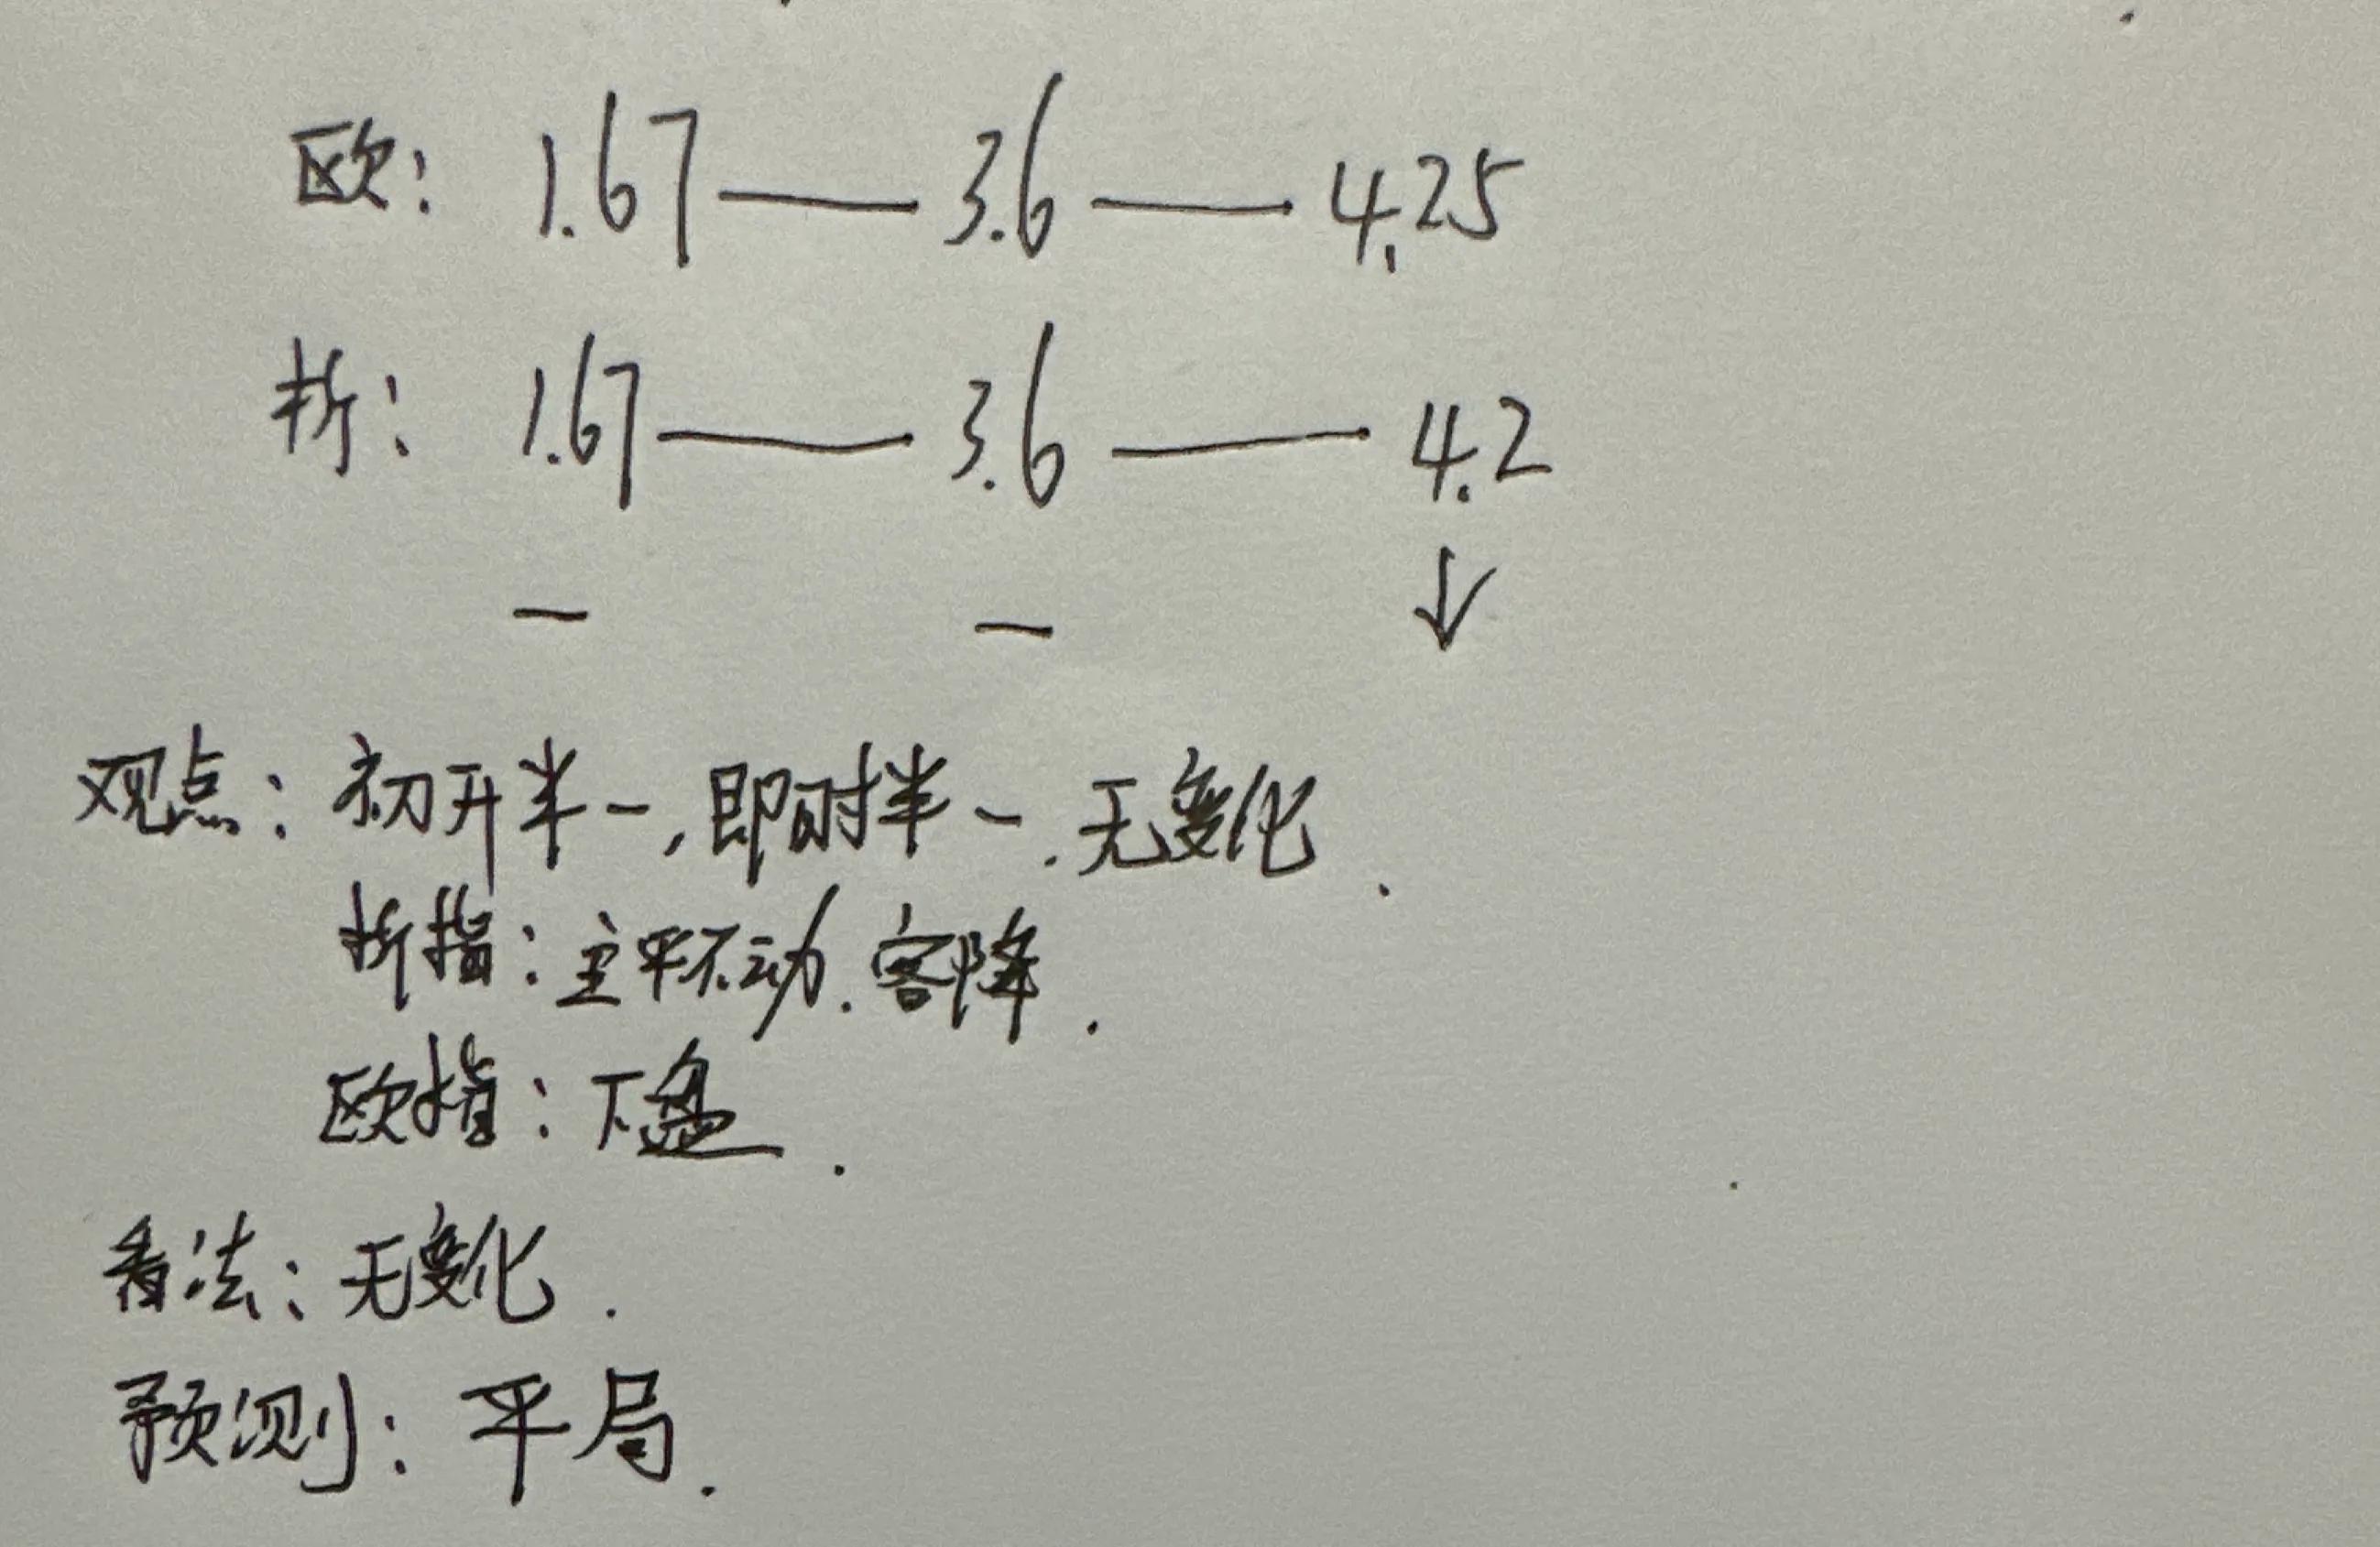 欧: 1.67 — 3.6 — 4.25
折: 1.67 — 3.6 — 4.2
— — ↓
观点: 初开半一, 即时半一. 无变化.
折指: 主平不动. 客降.
欧指: 下盘.
看法: 无变化.
预测: 平局.